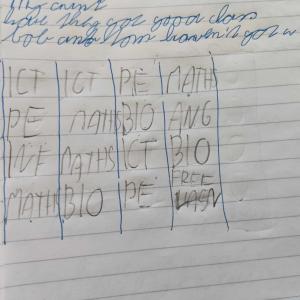 have they got good class
bob and tom haven't got a
ICT ICT PE MATHS
PE MATHS BIO ANG
INF MATHS ICT BIO
MATHS BIO PE FREE